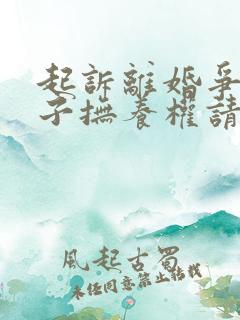 起訴離婚爭
子撫養權請
風起古蜀
未经同意禁止转载